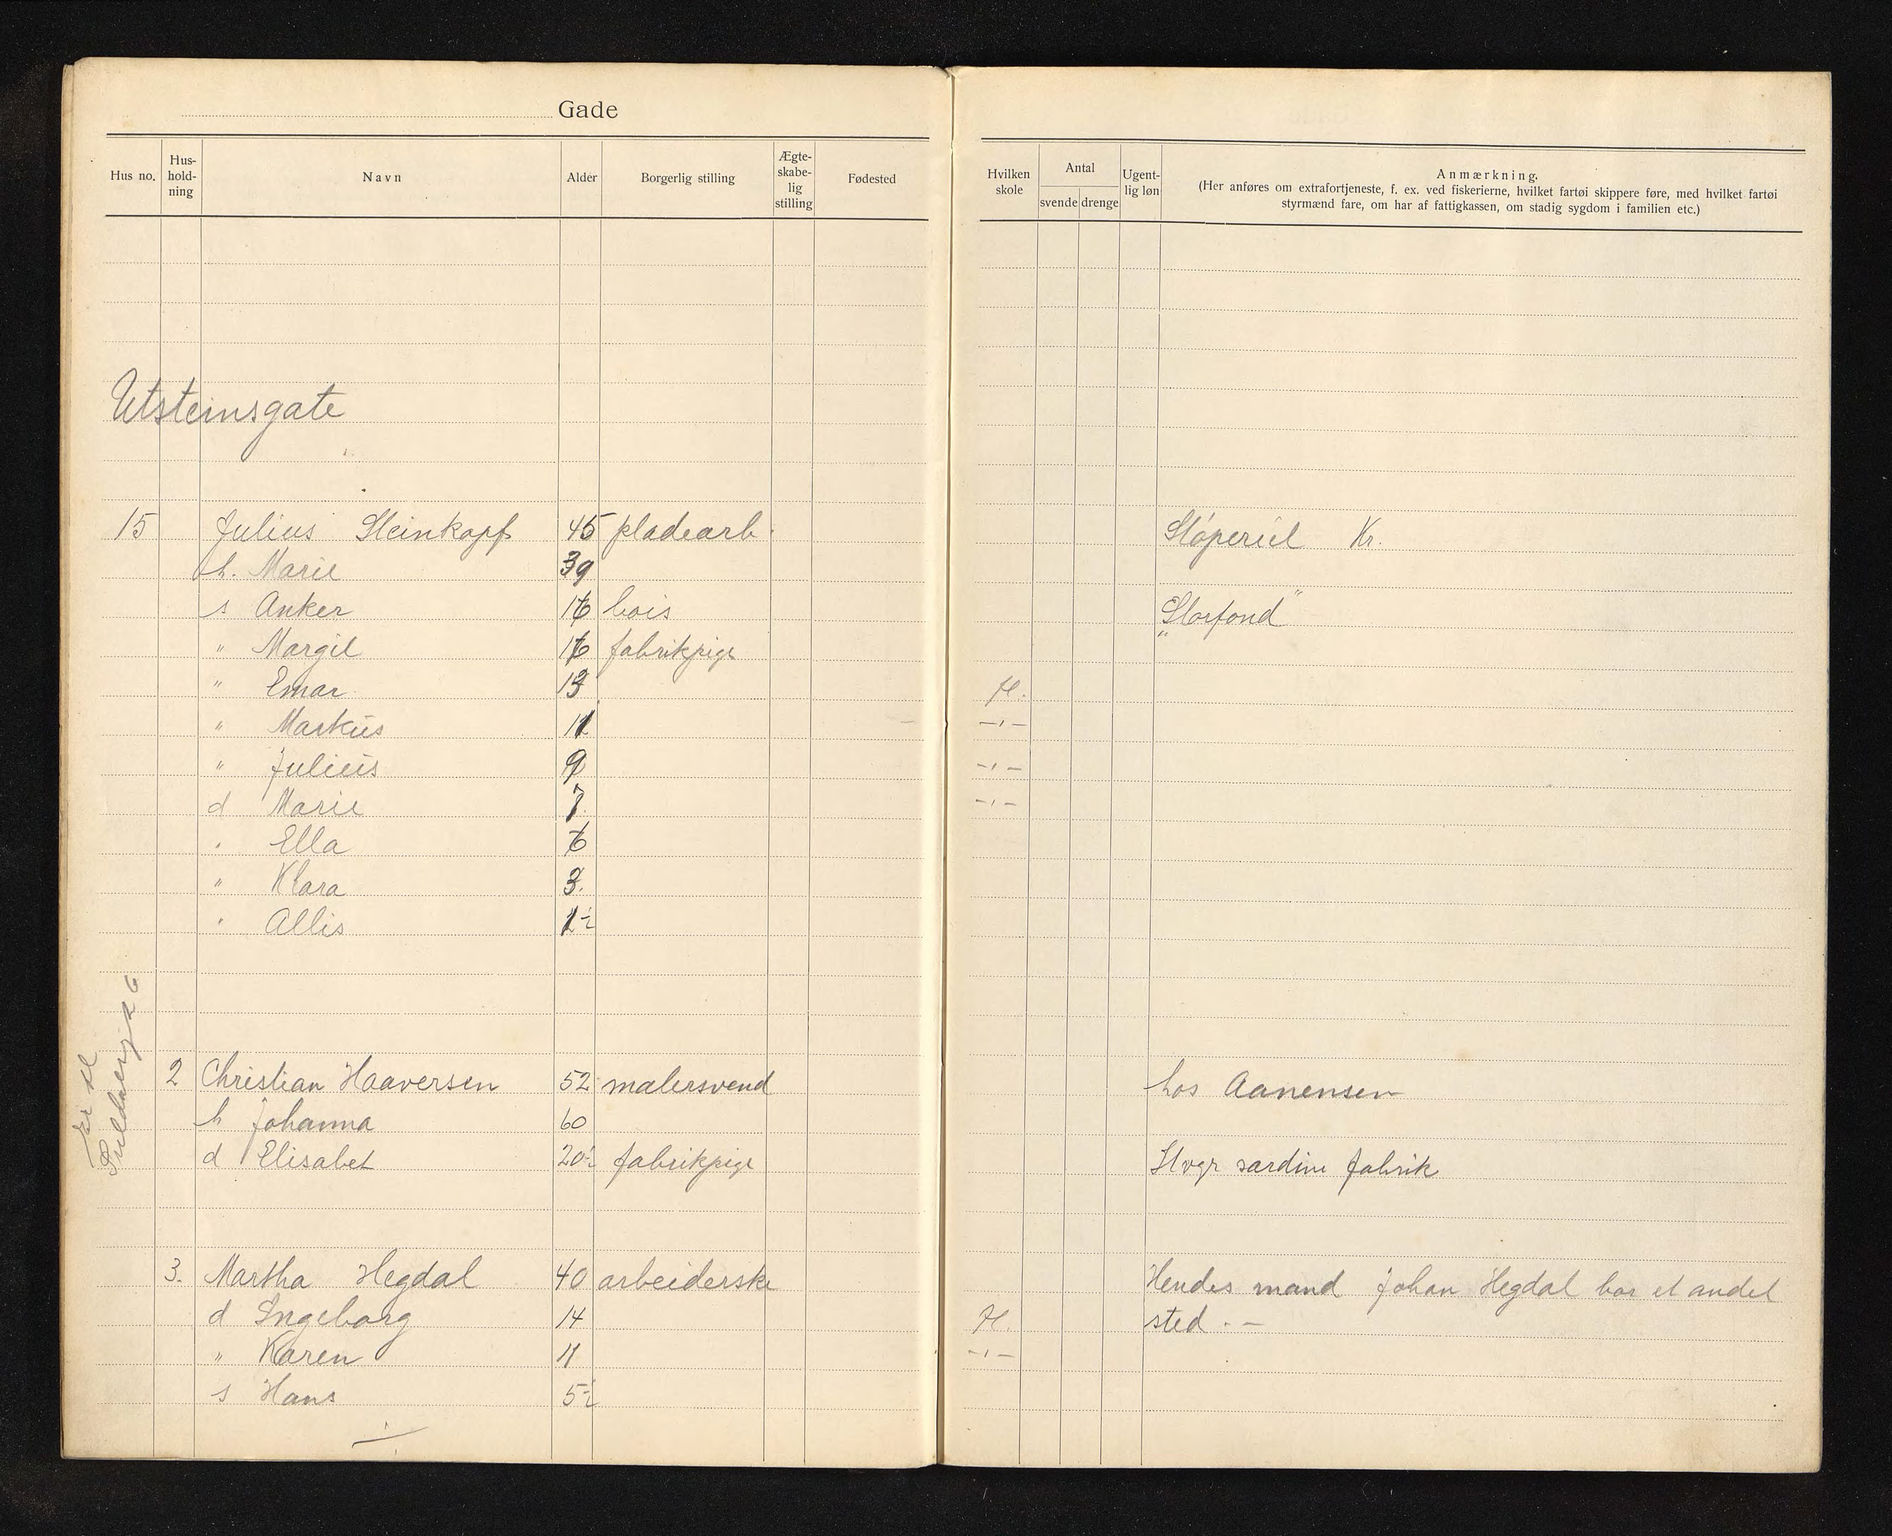 Gade
Hus no. Hus-hold-ning Navn Alder Borgerlig stilling Ægte-skabe-lig stilling Fødested
Hvilken skole Antal svende drenge Ugent-lig løn Anmærkning.
(Her anføres om extrafortjeneste, f. ex. ved fiskerierne, hvilket fartøi skippere føre, med hvilket fartøi
styrmænd fare, om har af fattigkassen, om stadig sygdom i familien etc.)
Utsteinsgate
15 Julius Steinkopf 45 pladearb. Støperiet Kr.
h. Marie 39
s Anker 16 bois "Storfond"
" Margit 16 fabrikpige
" Einar 13 H.
" Markus 11 -"-
" Julius 9 -"-
d Marie 7. -"-
" Ella 6
" Klara 3.
" Allis 1½
2 Christian Haaversen 52 malersvend hos Aanensen
h Johanna 60
d Elisabet 20½ fabrikpige Stvgr sardine fabrik
3. Martha Hegdal 40 arbeiderske Hendes mand Johan Hegdal bor et andet
d Ingeborg 14 H. sted. -
" Karen 11 -"-
s Hans 5½